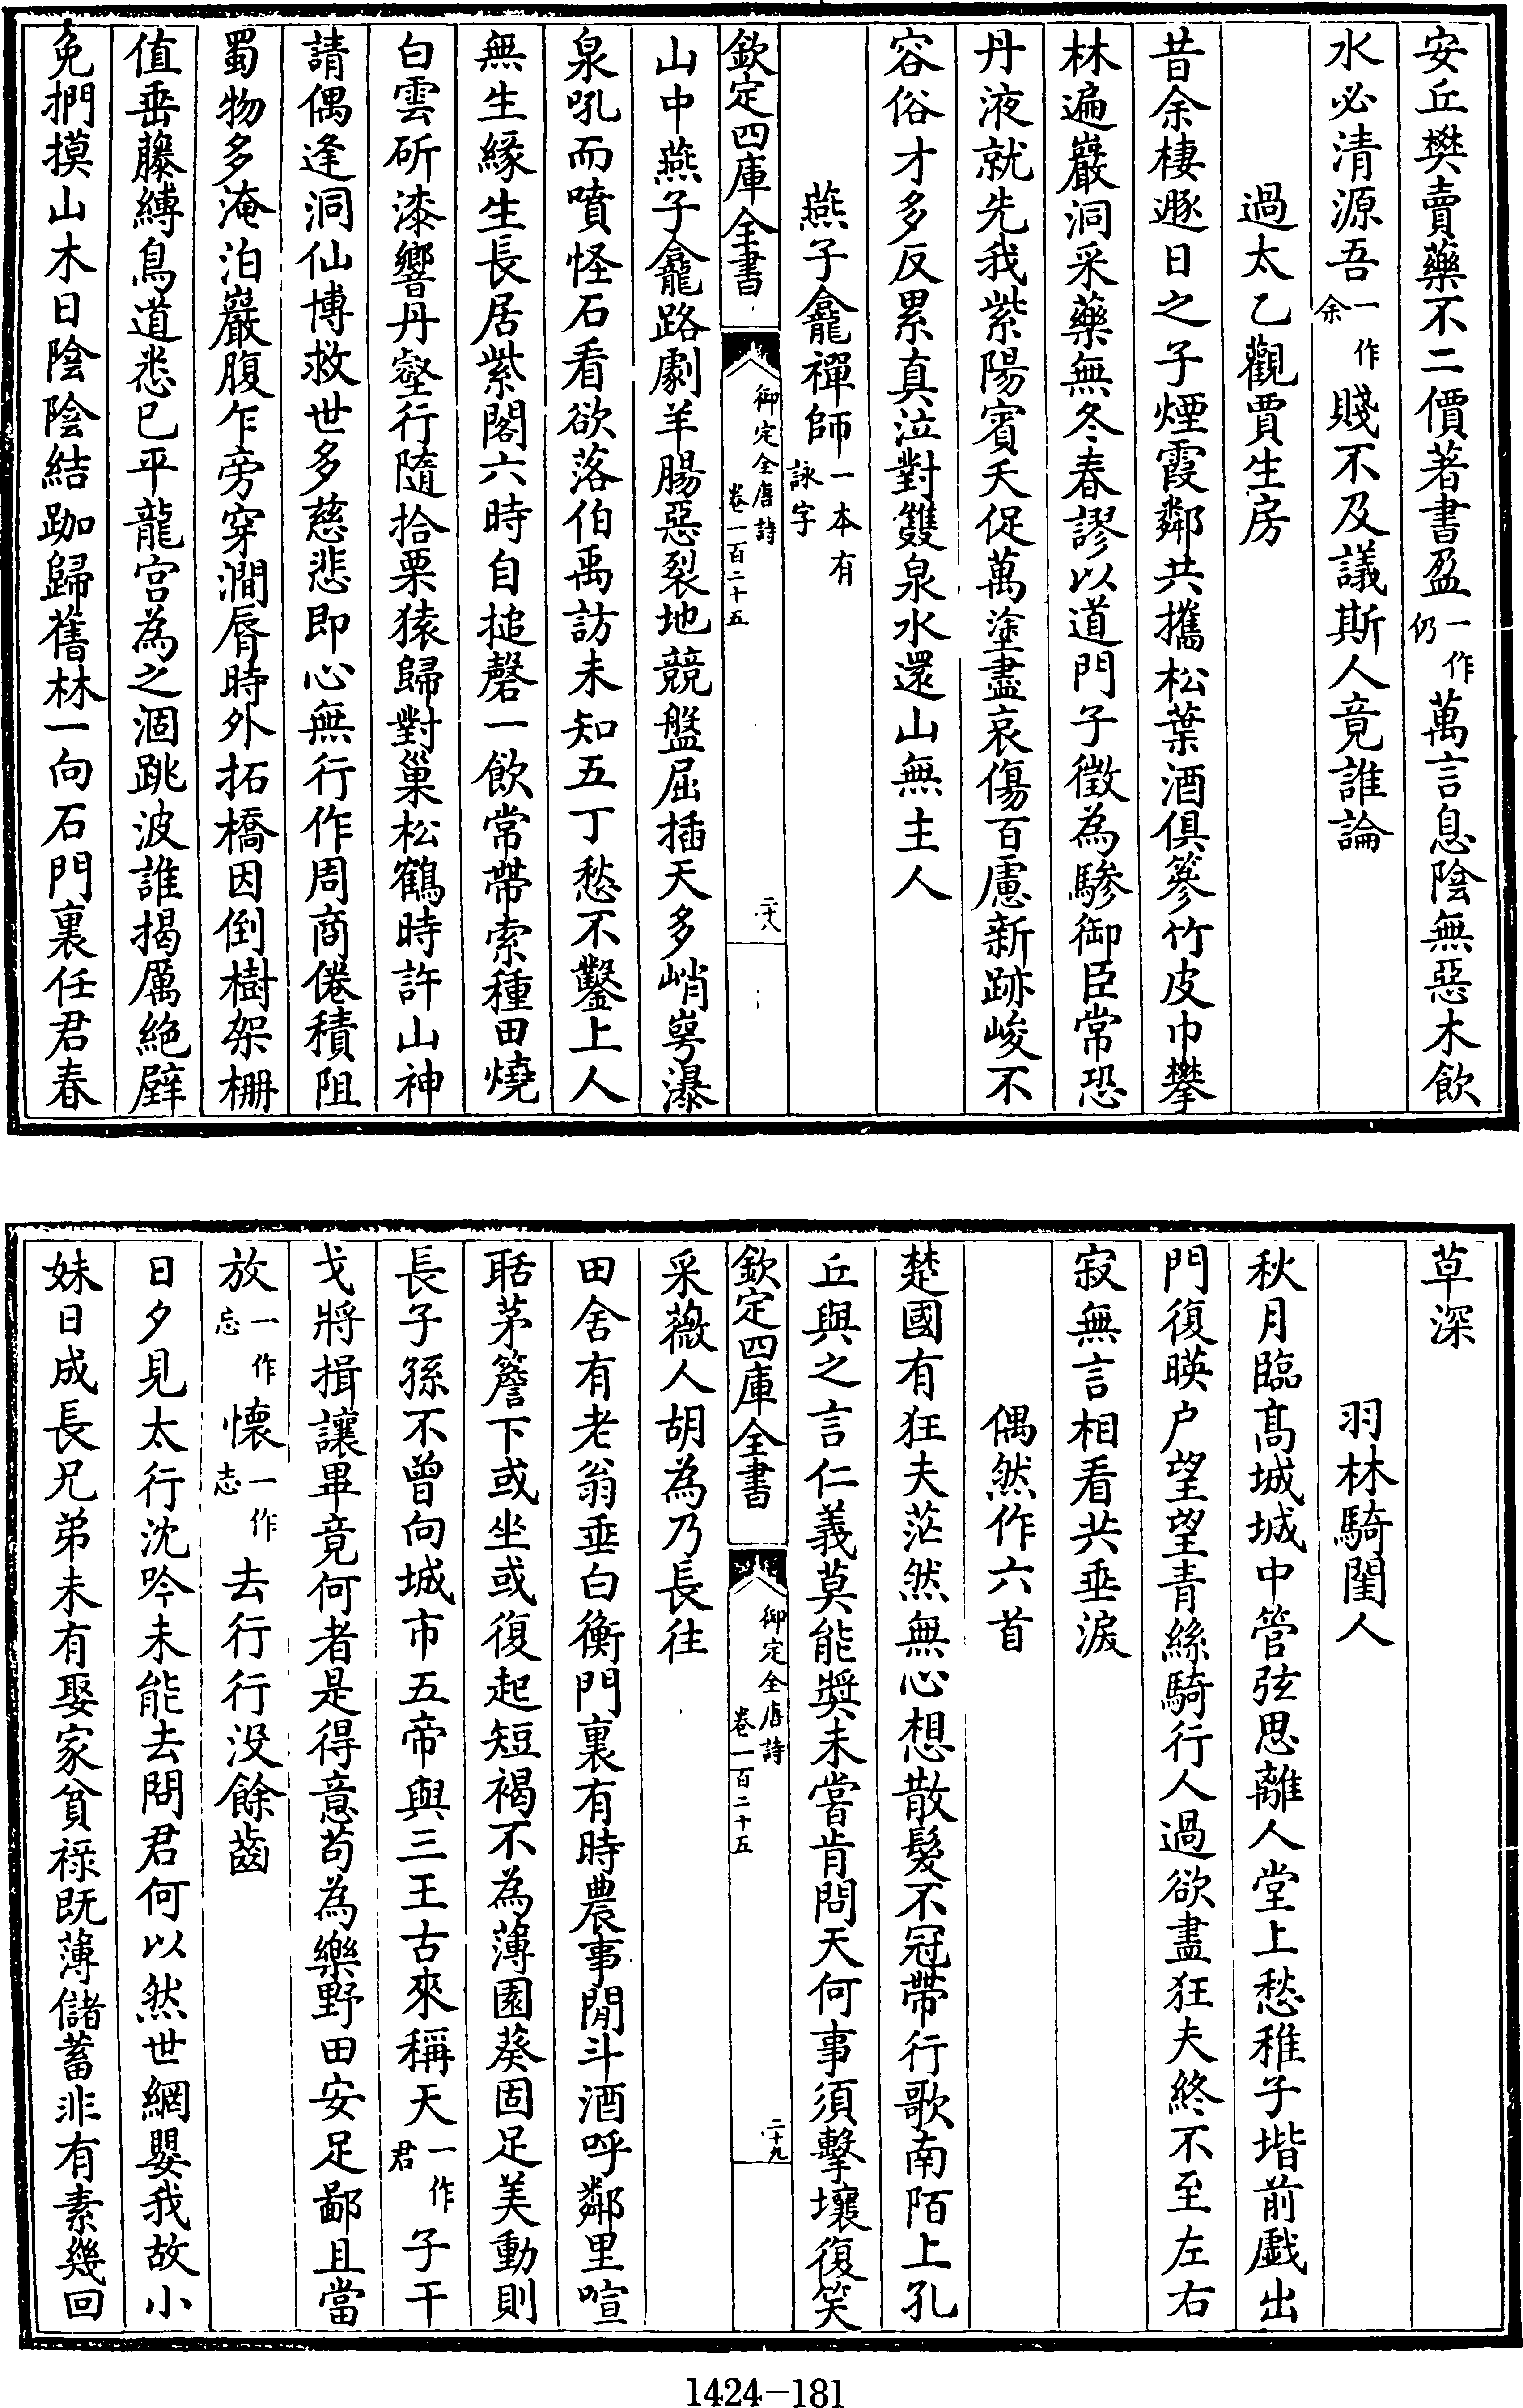 安丘樊賣藥不二價著書盈一作仍萬言息陰無惡木飲
水必清源吾一作余賤不及議斯人竟誰論
過太乙觀賈生房
昔余棲遯日之子煙霞鄰共攜松葉酒俱簪竹皮巾攀
林遍巖洞采藥無冬春謬以道門子徵為驂御臣常恐
丹液就先我紫陽賓夭促萬塗盡哀傷百慮新跡峻不
容俗才多反累真泣對雙泉水還山無主人
燕子龕禪師一本有詠字
欽定四庫全書
御定全唐詩
卷一百二十五
二十八
山中燕子龕路劇羊腸惡裂地競盤屈插天多峭崿瀑
泉吼而噴怪石看欲落伯禹訪未知五丁愁不鑿上人
無生緣生長居紫閣六時自搥磬一飲常帶索種田燒
白雲斫漆響丹壑行隨拾栗猿歸對巢松鶴時許山神
請偶逢洞仙博救世多慈悲即心無行作周商倦積阻
蜀物多淹泊巖腹乍旁穿澗脣時外拓橋因倒樹架柵
值垂藤縛鳥道悉已平龍宫為之涸跳波誰揭厲絶壁
免捫摸山木日陰陰結跏歸舊林一向石門裏任君春
草深
羽林騎閨人
秋月臨髙城城中管弦思離人堂上愁稚子堦前戲出
門復暎户望望青絲騎行人過欲盡狂夫終不至左右
寂無言相看共垂淚
偶然作六首
楚國有狂夫茫然無心想散髮不冠帶行歌南陌上孔
丘與之言仁義莫能奬未嘗肯問天何事須擊壤復笑
欽定四庫全書
御定全唐詩
卷一百二十五
二十九
采薇人胡為乃長往
田舍有老翁垂白衡門裏有時農事閒斗酒呼鄰里喧
聒茅簷下或坐或復起短褐不為薄園葵固足美動則
長子孫不曾向城市五帝與三王古來稱天一作君子干
戈將揖讓畢竟何者是得意苟為樂野田安足鄙且當
放一作忘懷一作志去行行没餘齒
日夕見太行沈吟未能去問君何以然世網嬰我故小
妹日成長兄弟未有娶家貧祿既薄儲蓄非有素幾回
1424-181